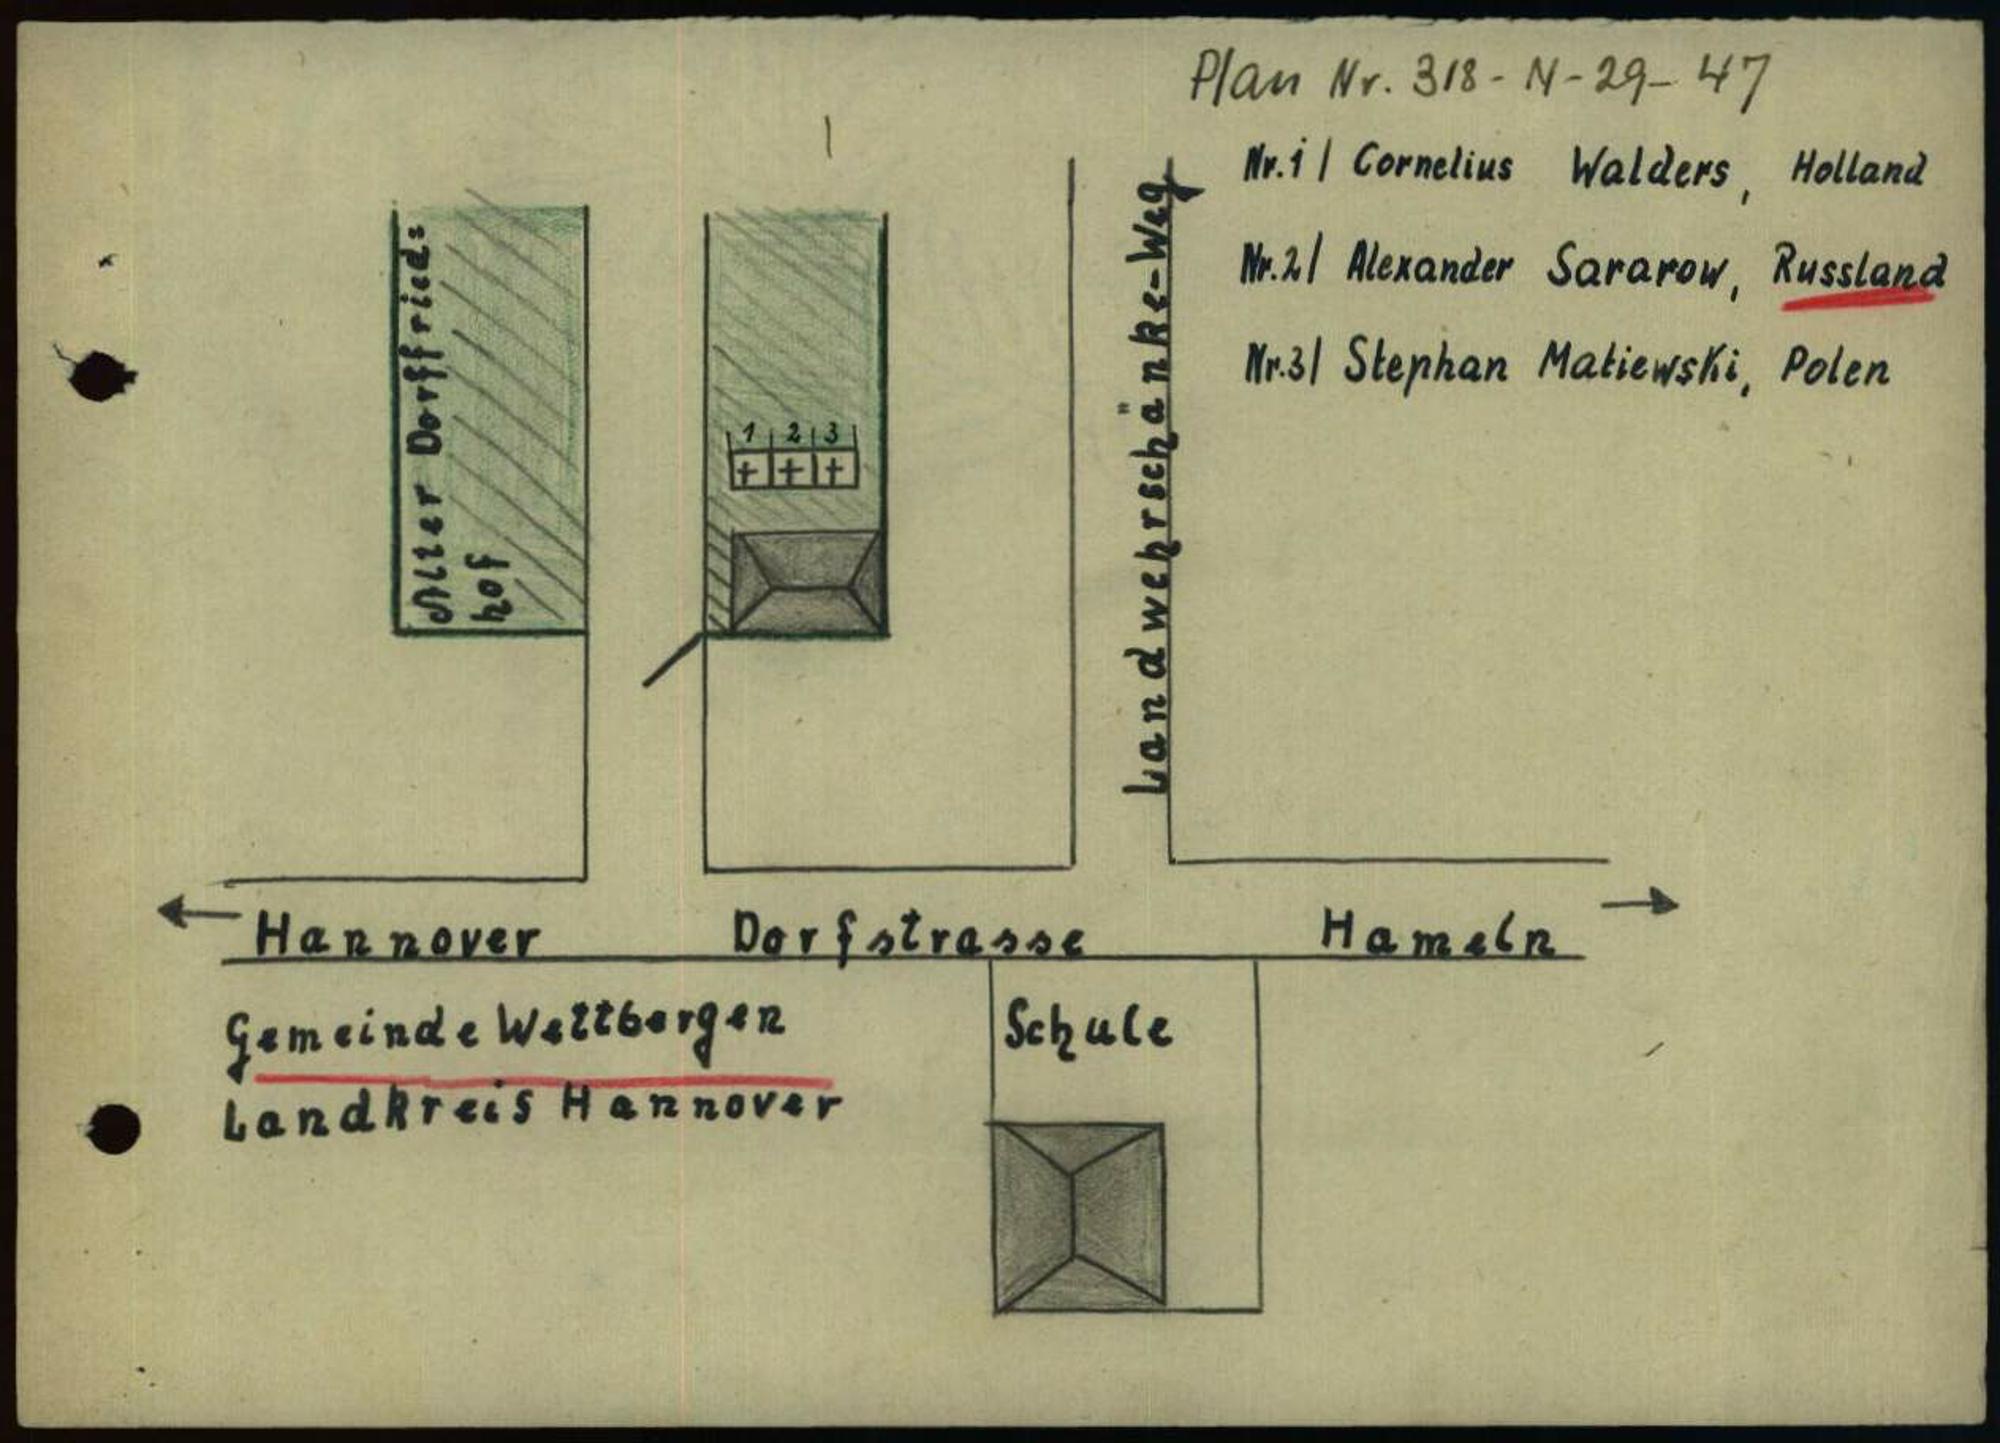 Plan Nr. 318-N-29-47
Nr.1/ Cornelius Walders, Holland
Nr.2/ Alexander Sararow, Russland
Nr.3/ Stephan Matiewski, Polen
Alter Dorffried=
hof
1 2 3
Landwehrschänke-Weg
Hannover Dorfstrasse Hameln
Gemeinde Wettbergen
Landkreis Hannover
Schule